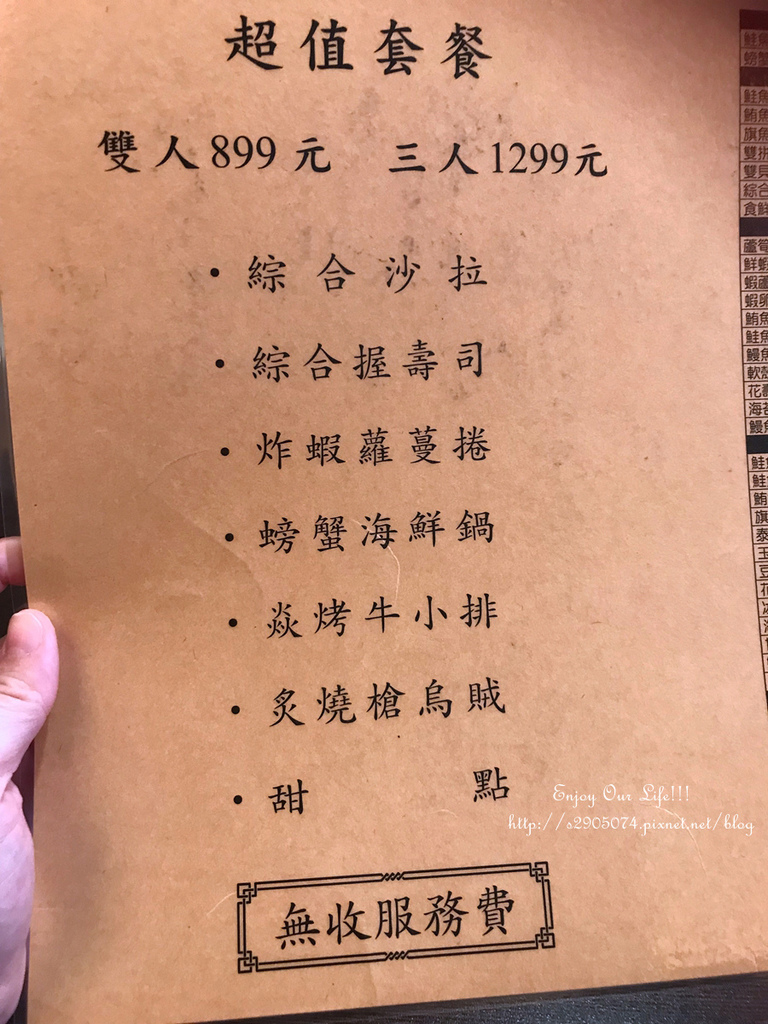 超值套餐
雙人899元 三人1299元
・綜合沙拉
・綜合握壽司
・炸蝦蘿蔓捲
・螃蟹海鮮鍋
・焱烤牛小排
・炙燒槍烏賊
・甜點
Enjoy Our Life!!!
http://s2905074.pixnet.net/blog
無收服務費